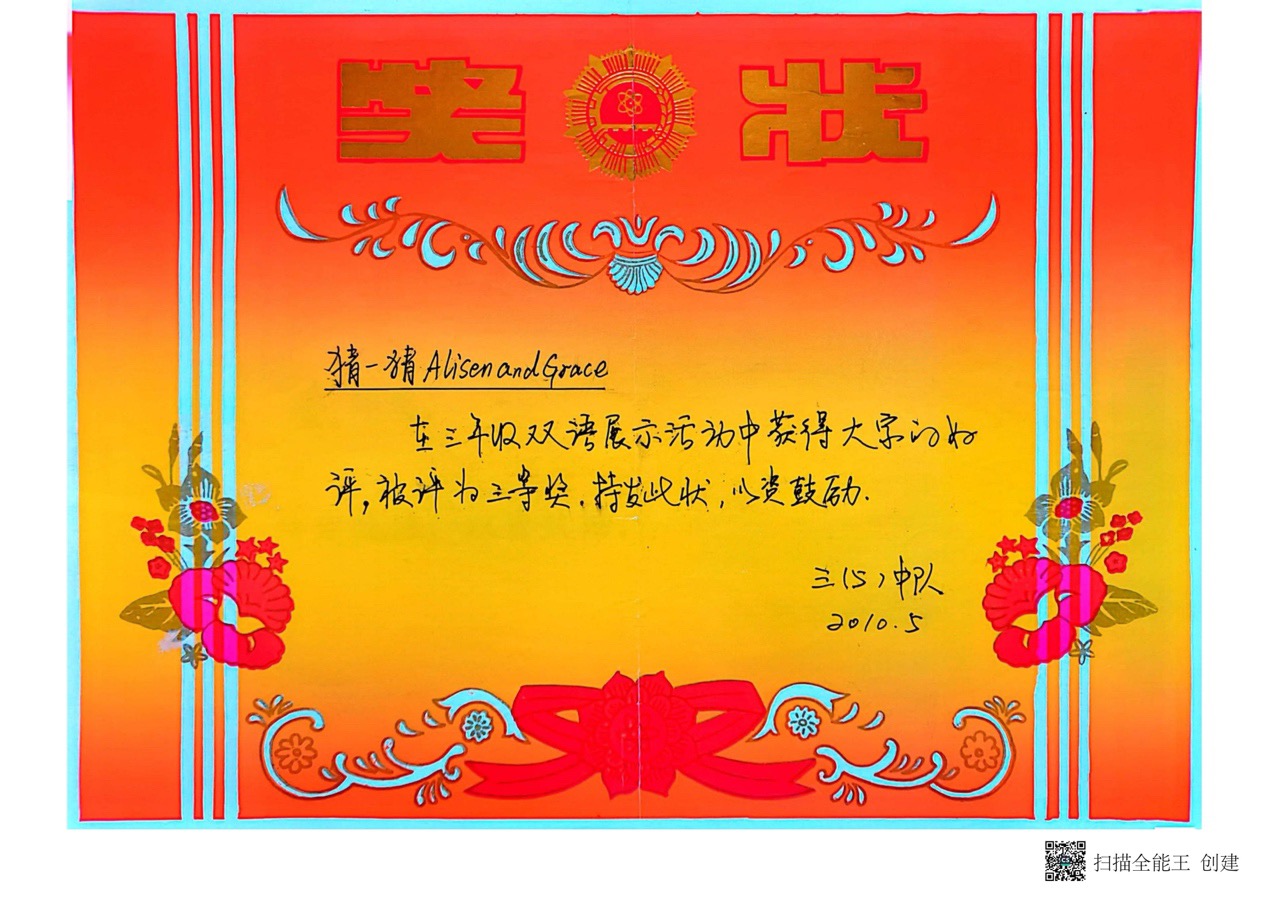 奖状
猜一猜 Alisen and Grace
在三年级双语展示活动中获得大家的好
评，被评为三等奖．特发此状，以资鼓励．
三(5)中队
2010.5
扫描全能王 创建